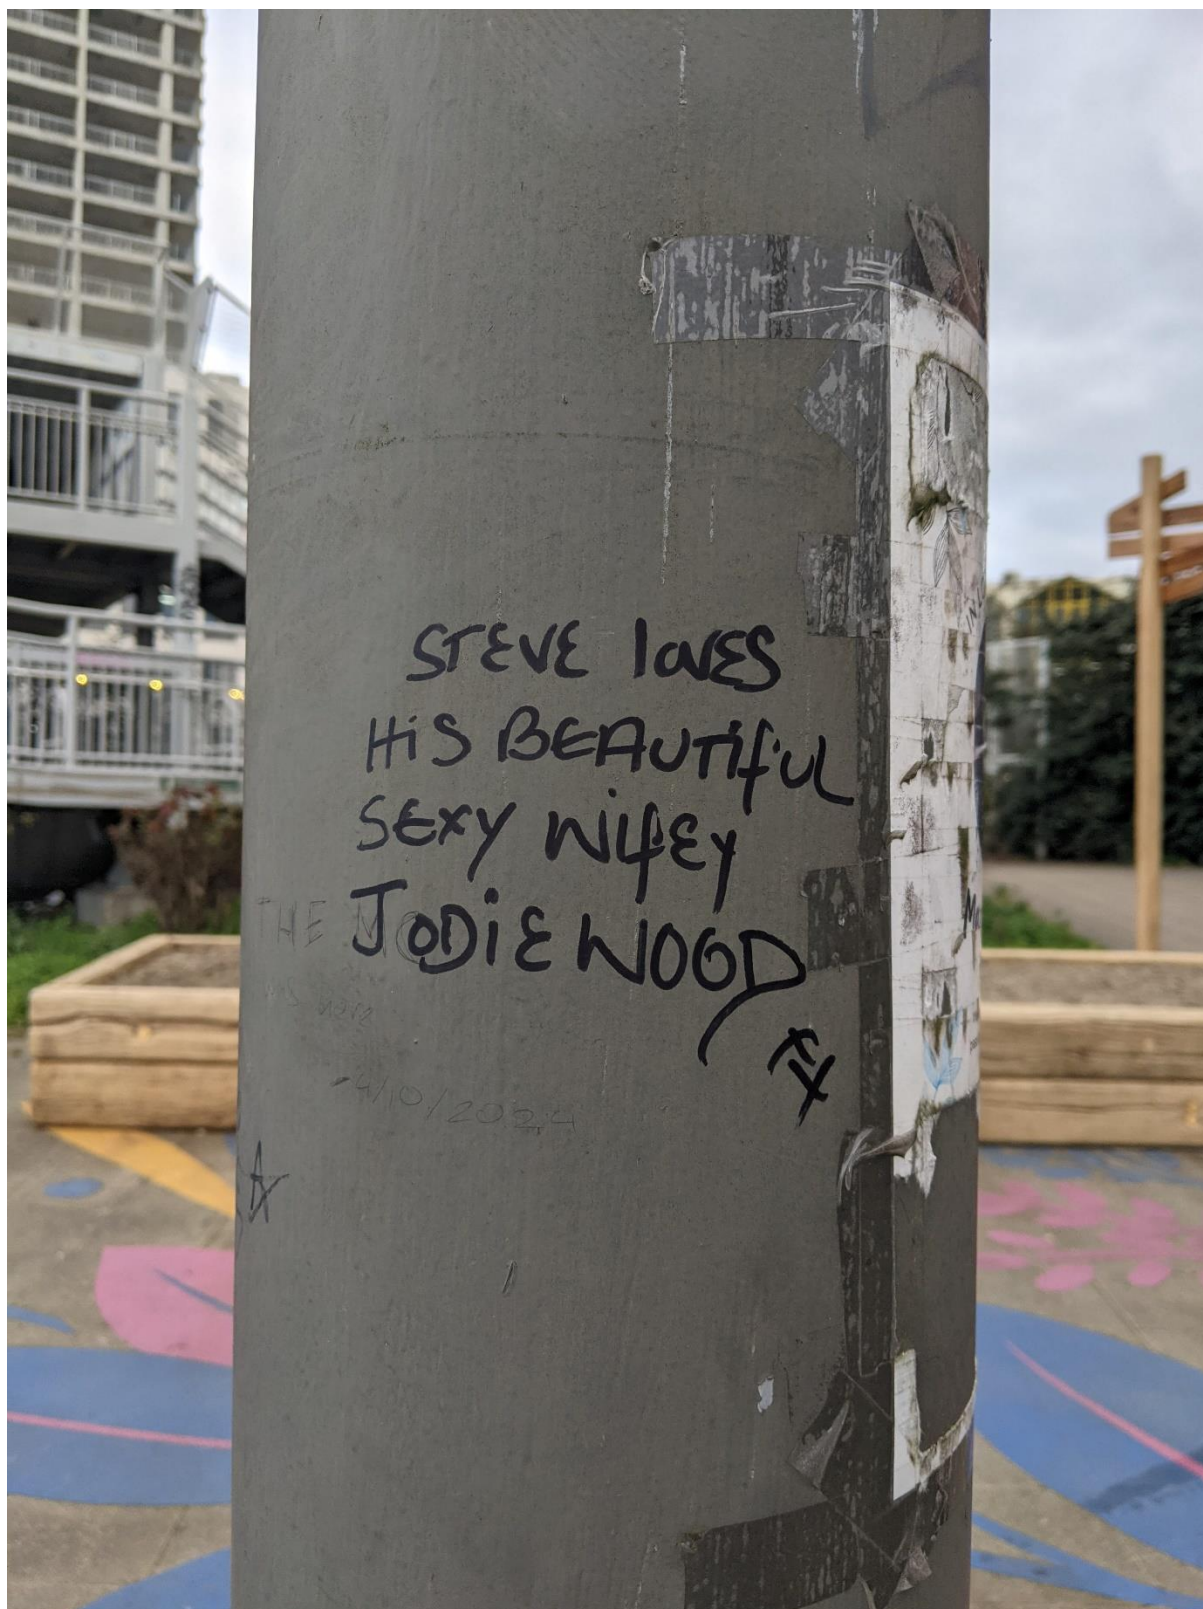 STEVE lOVES
HiS BEAUTifUL
SEXY WifEY
JODIE WOOD
XX
THE
4/10/2024